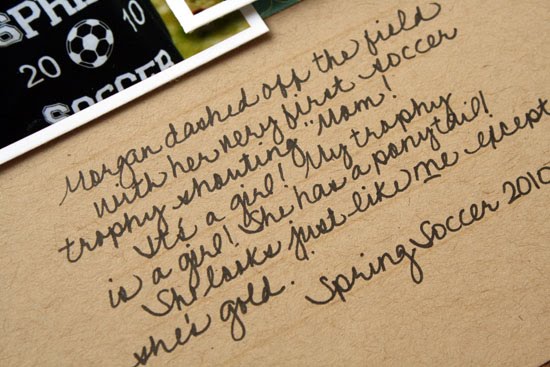 SPRI
20 10
SOCCER
Morgan dashed off the field
with her very first soccer
trophy shouting "Mom!
It's a girl! My trophy
is a girl! She has a ponytail!
She looks just like me except
she's gold. Spring Soccer 2010